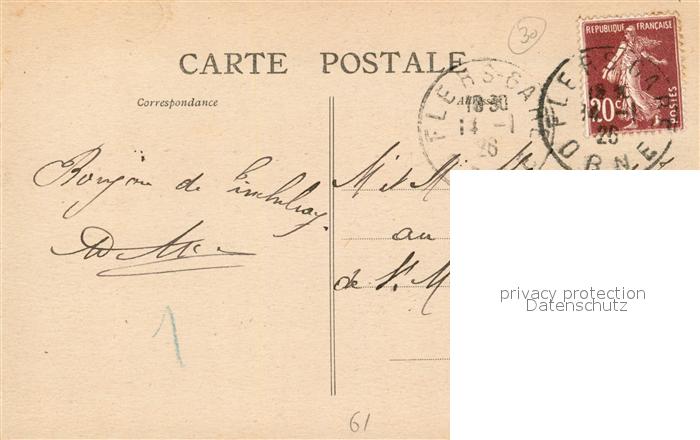 30
CARTE POSTALE
Correspondance
Adresse
REPUBLIQUE FRANÇAISE
20c
POSTES
FLERS-GARE
18 30
14 -1
26
FLERS-GARE
18 30
-1
26
ORNE
Bonjour de Tinchebray.
M et M
au
de St M
1
61
privacy protection
Datenschutz